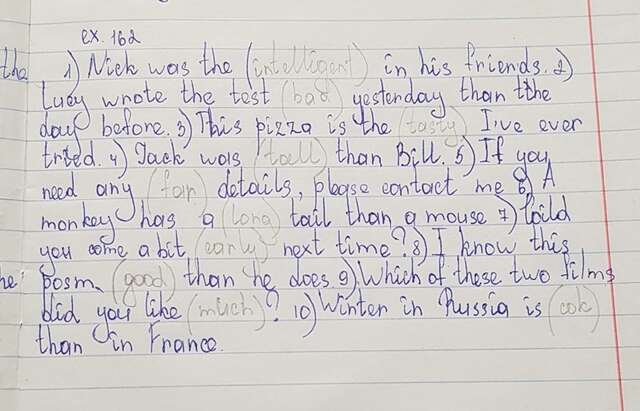 ex. 162
the 1) Nick was the (intelligent) in his friends. 2)
Lucy wrote the test (bad) yesterday than the
day before. 3) This pizza is the (tasty) I've ever
tried. 4) Jack was (tall) than Bill. 5) If you
need any (far) details, please contact me 6) A
monkey has a (long) tail than a mouse 7) Could
you come a bit (early) next time? 8) I know this
he poem (good) than he does. 9) Which of these two films
did you like (much)? 10) Winter in Russia is (cold)
than in France.